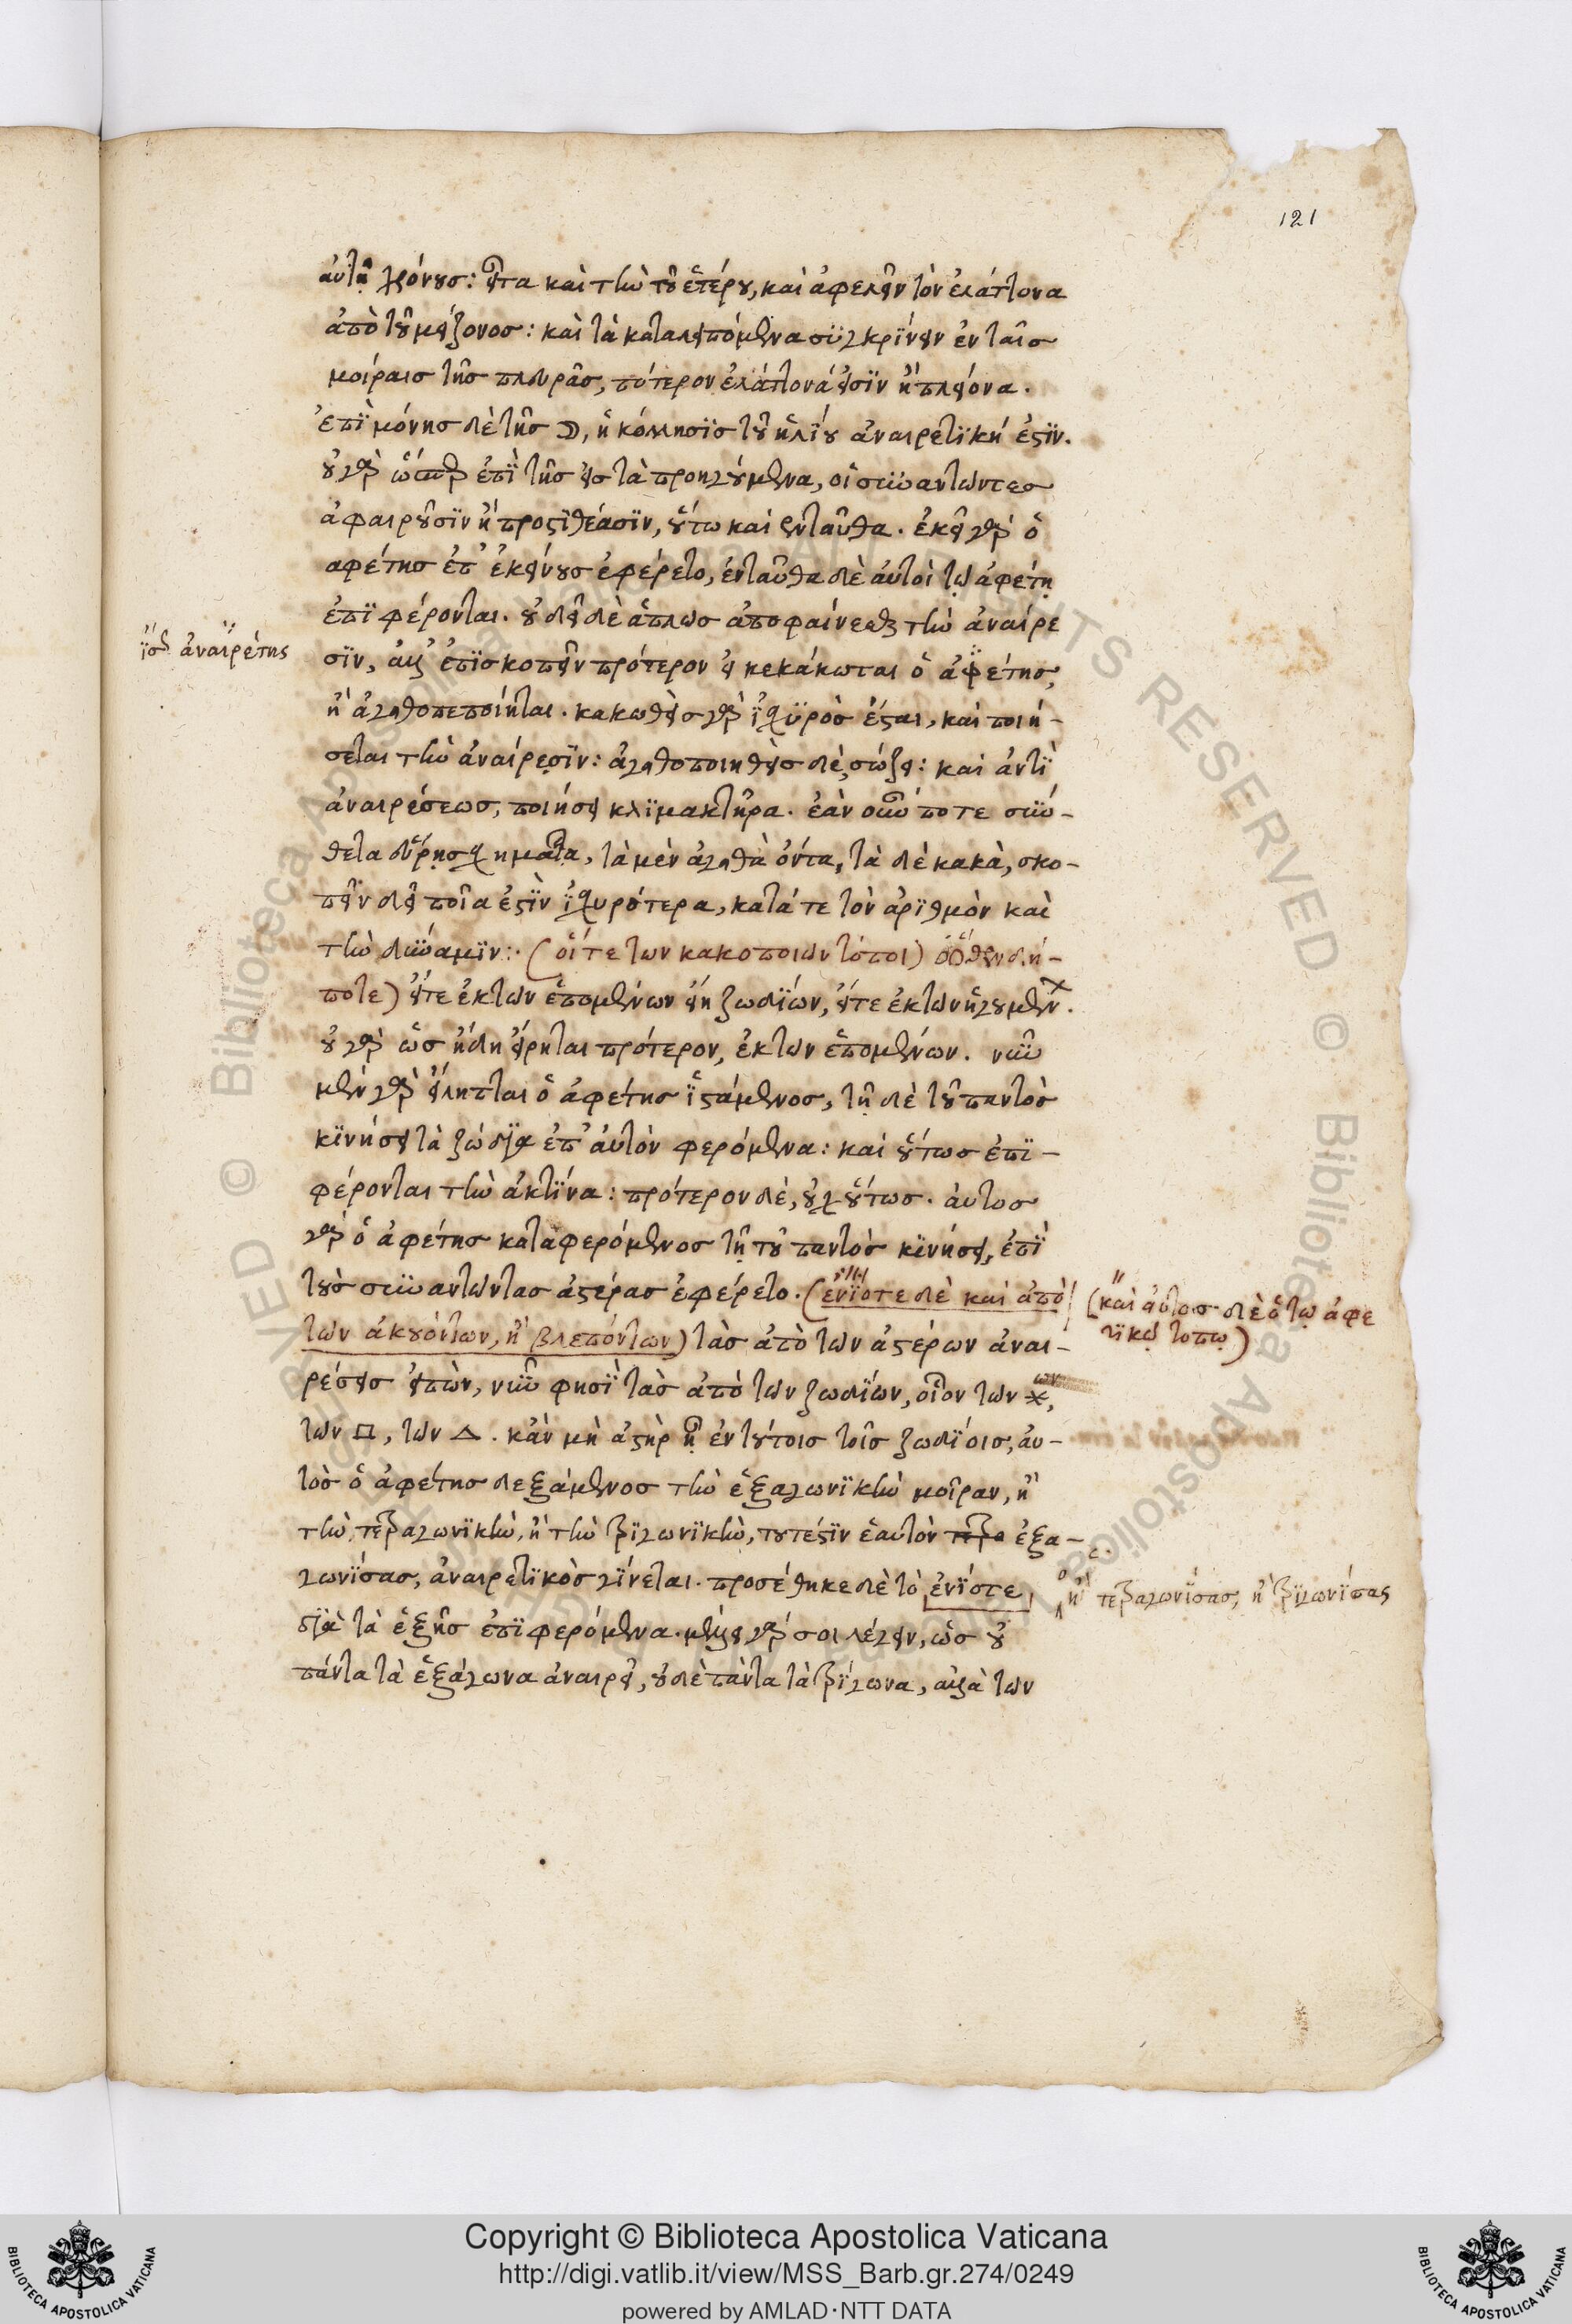 121
αὐτῆ χρόνους: εἶτα καὶ τὴν τοῦ ἑτέρου, καὶ ἀφελεῖν τὸν ἐλάττονα
ἀπὸ τοῦ μείζονος: καὶ τὰ καταλειπόμενα συγκρίνειν ἐν ταῖς
μοίραις τῆς πλευρᾶς, πότερον ἐλάττονά εἰσϊν ἢ πλείονα.
ἐπῒ μόνης δὲ τῆς ☽, ἡ κόλλησϊς τοῦ ἡλίου ἀναιρετϊκή ἐστϊν.
οὐ γὰρ ὥσπερ ἐπῒ τῆς εἰς τὰ προηγούμενα, οἱ συναντῶντες
ἀφαιροῦσϊν ἢ προστϊθέασϊν, οὕτω καὶ ἐνταῦθα. ἐκεῖ γὰρ ὁ
αφέτης ἐπ' ἐκείνους ἐφέρετο, ἐνταῦθα δὲ αὐτοὶ τῷ ἀφέτῃ
ἐπϊφέρονται. οὐ δεῖ δὲ ἁπλῶς ἀποφαίνεσθαι τὴν ἀναίρε
ἰσ ἀναιρέτης
σϊν, ἀλλ' ἐπϊσκοπεῖν πρότερον εἰ κεκάκωται ὁ ἀφέτης,
ἢ ἀγαθοπεποίηται. κακωθεὶς γὰρ ἰσχϋρὸς ἔσται, καὶ ποιή-
σεται τὴν ἀναίρεσϊν: ἀγαθοποιηθεὶς δὲ, σώζει: καὶ ἀντῒ
ἀναιρέσεως, ποιήσει κλϊμακτῆρα. ἐὰν οὖν ποτε σύν-
θετα εὕρῃς σχήματα, τὰ μὲν ἀγαθὰ ὄντα, τὰ δὲ κακὰ, σκο-
πεῖν δεῖ ποῖα ἐστῒν ἰσχυρότερα, κατά τε τὸν ἀρϊθμὸν καὶ
τὴν δύναμϊν:· (οἵ τε των κακοποιων τόποι) ὅθεν δή-
ποτε) εἴτε ἐκ τῶν ἑπομένων εἴη ζωδΐων, εἴτε ἐκ τῶν ἡγουμένων.
οὐ γὰρ ὡς ἤδη εἴρηται πρότερον, ἐκ τῶν ἑπομένων. νῦν
μὲν γὰρ εἴληπται ὁ ἀφέτης ἱστάμενος, τῇ δὲ τοῦ παντὸς
κϊνήσει τὰ ζώδϊα ἐπ' αὐτὸν φερόμενα: καὶ οὕτως ἐπϊ-
φέρονται τὴν ἀκτῖνα: πρότερον δὲ, οὐχ οὕτως. ἀυτος
γὰρ ὁ ἀφέτης καταφερόμενος τῇ τοῦ παντὸς κϊνήσει, ἐπῒ
τοὺς συναντῶντας ἀστέρας ἐφέρετο. (ἐνΐοτε δὲ καὶ ἀπὸ
(καὶ αὐτος δὲ ὁ τῳ ἀφε
τικῷ τοπῳ)
τῶν ἀκουόντων, ἢ βλεπόντων) τὰς ἀπὸ των ἀστέρων ἀναι-
ρέσεις εἰπὼν, νῦν φησῒ τὰς ἀπὸ τῶν ζωδΐων, οἷον των ⚹ων,
τῶν □, τῶν △. κἂν μὴ ἀστὴρ ᾖ ἐν τούτοις τοῖς ζωδΐοις, ἀυ-
τὸς ὁ ἀφέτης δεξάμενος τὴν ἑξαγωνϊκὴν μοῖραν, ἢ
τὴν τετραγωνϊκὴν, ἢ τὴν τρϊγωνϊκὴν, τουτέστϊν ἑαυτὸν τετρα ἑξα-
γωνΐσας, ἀναιρετϊκὸς γΐνεται. προσέθηκε δὲ τὸ ἐνΐοτε
ἢ τετραγωνΐσας, ἢ τρϊγωνΐσας
δϊὰ τὰ ἑξῆς ἐπϊφερόμενα. μέλλει γάρ σοι λέγειν, ὡς οὐ
πάντα τὰ ἑξάγωνα ἀναιρεῖ, οὐδὲ πάντα τὰ τρΐγωνα, ἀλλὰ τῶν
Copyright © Biblioteca Apostolica Vaticana
http://digi.vatlib.it/view/MSS_Barb.gr.274/0249
powered by AMLAD·NTT DATA